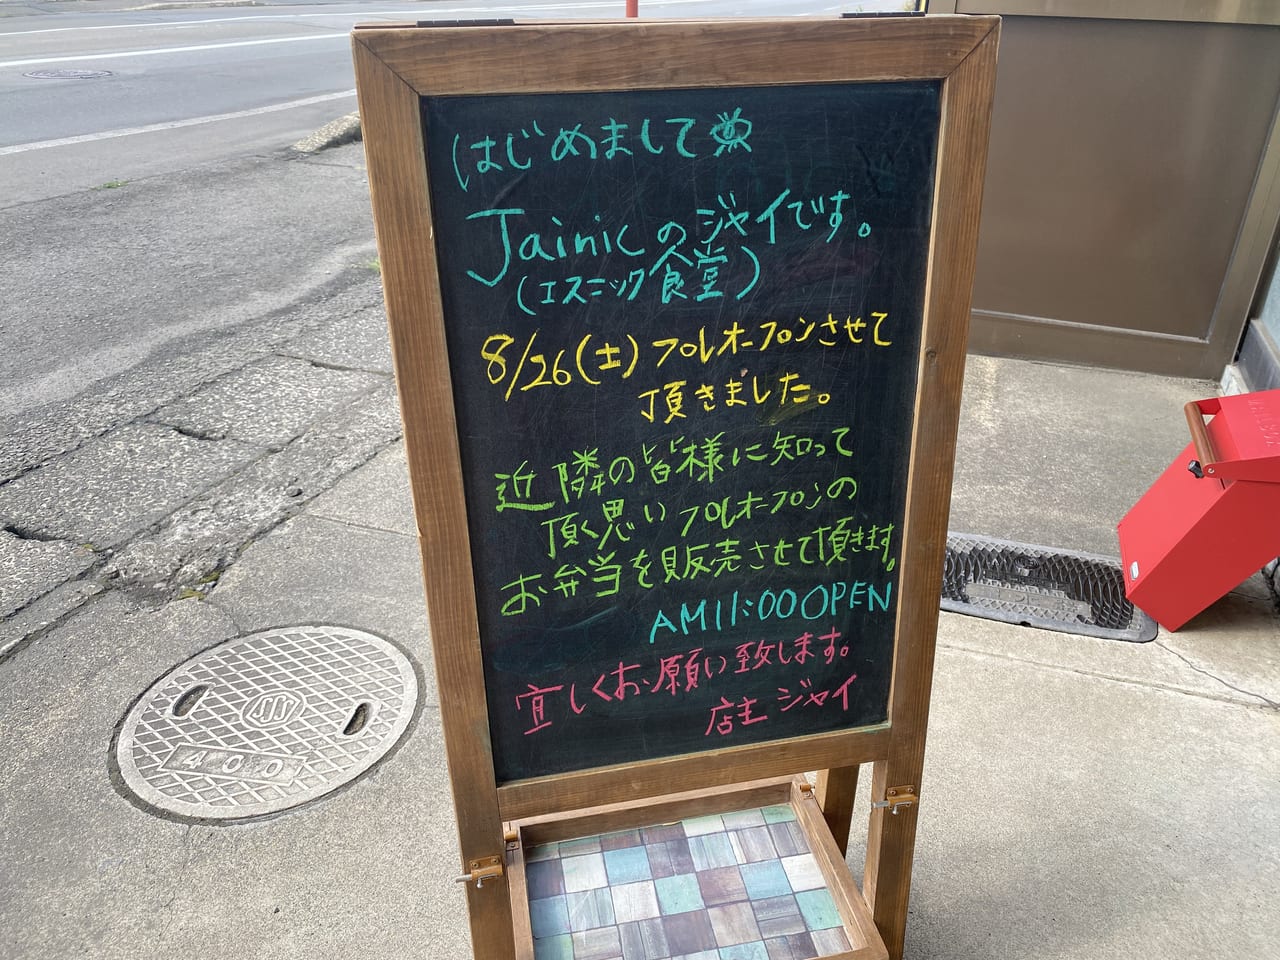 はじめまして
Jainicのジャイです。
(エスニック食堂)
8/26(土)プレオープンさせて
頂きました。
近隣の皆様に知って
頂く思いプレオープンの
お弁当を販売させて頂きます。
AM11:00 OPEN
宜しくお願い致します。
店主 ジャイ
400